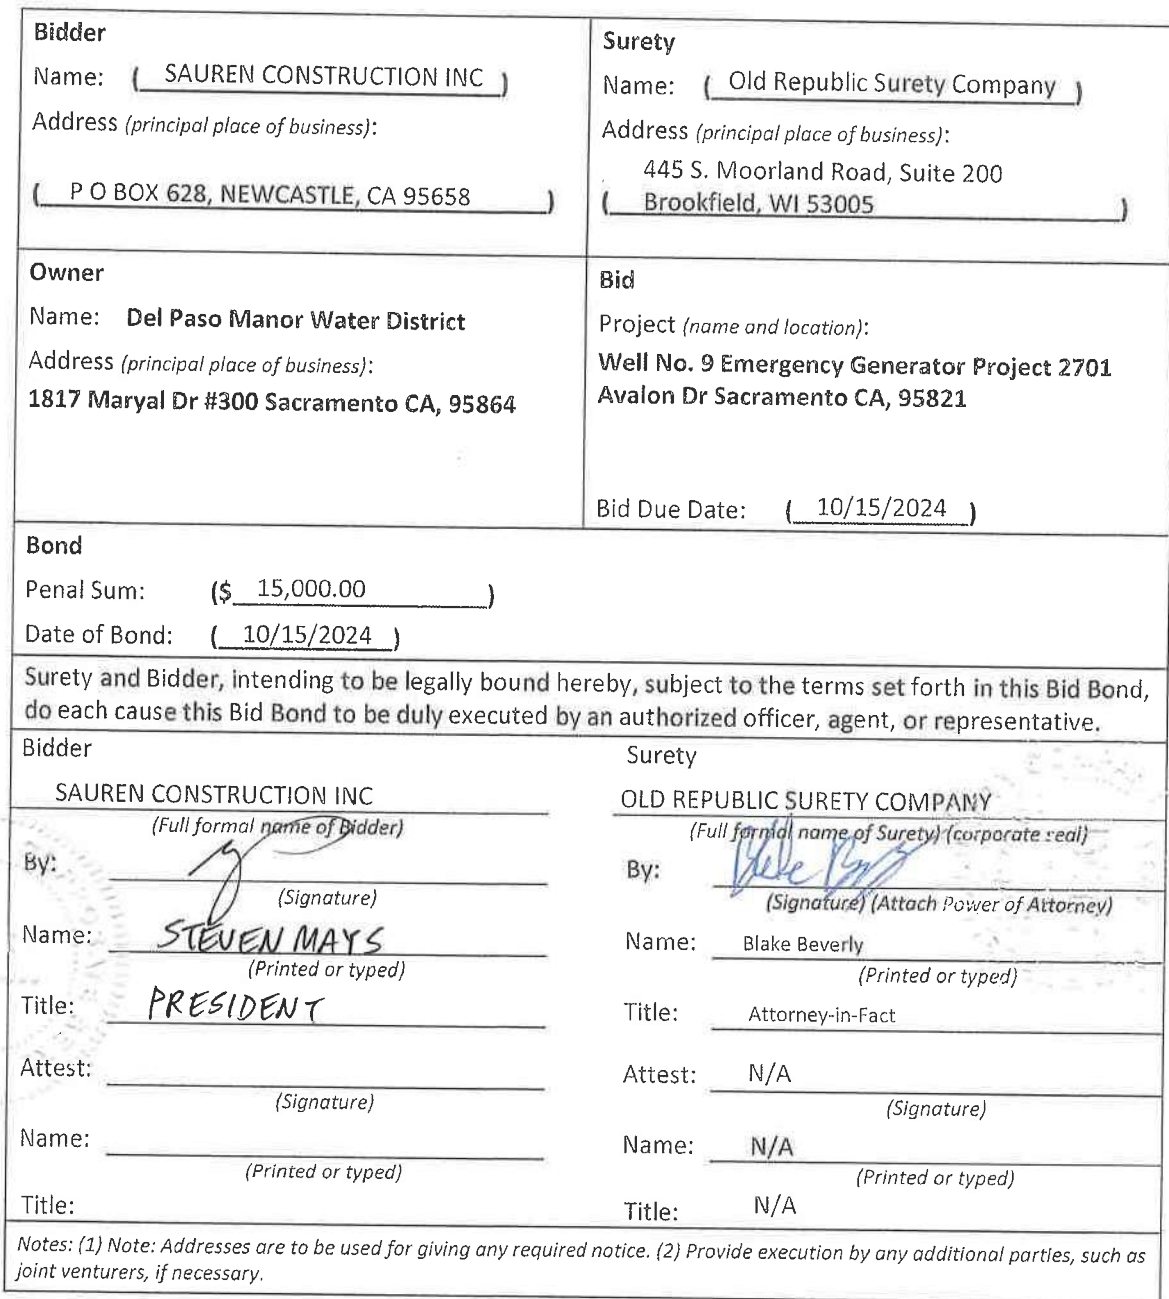 Bidder
Name: ( SAUREN CONSTRUCTION INC )
Address (principal place of business):
( P O BOX 628, NEWCASTLE, CA 95658 )
Surety
Name: ( Old Republic Surety Company )
Address (principal place of business):
445 S. Moorland Road, Suite 200
( Brookfield, WI 53005 )
Owner
Name: Del Paso Manor Water District
Address (principal place of business):
1817 Maryal Dr #300 Sacramento CA, 95864
Bid
Project (name and location):
Well No. 9 Emergency Generator Project 2701
Avalon Dr Sacramento CA, 95821
Bid Due Date: ( 10/15/2024 )
Bond
Penal Sum: ($ 15,000.00 )
Date of Bond: ( 10/15/2024 )
Surety and Bidder, intending to be legally bound hereby, subject to the terms set forth in this Bid Bond,
do each cause this Bid Bond to be duly executed by an authorized officer, agent, or representative.
Bidder
SAUREN CONSTRUCTION INC
(Full formal name of Bidder)
By:
(Signature)
Name: STEVEN MAYS
(Printed or typed)
Title: PRESIDENT
Attest:
(Signature)
Name:
(Printed or typed)
Title:
Surety
OLD REPUBLIC SURETY COMPANY
(Full formal name of Surety) (corporate seal)
By:
(Signature) (Attach Power of Attorney)
Name: Blake Beverly
(Printed or typed)
Title: Attorney-in-Fact
Attest: N/A
(Signature)
Name: N/A
(Printed or typed)
Title: N/A
Notes: (1) Note: Addresses are to be used for giving any required notice. (2) Provide execution by any additional parties, such as
joint venturers, if necessary.